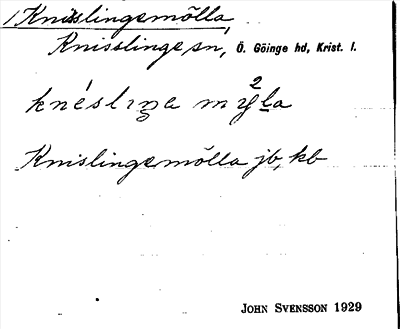 Knislingemölla
Knisslinge sn, Ö. Göinge hd, Krist. l.
knéslıŋa mỹla
Knislingemölla jb, kb
JOHN SVENSSON 1929